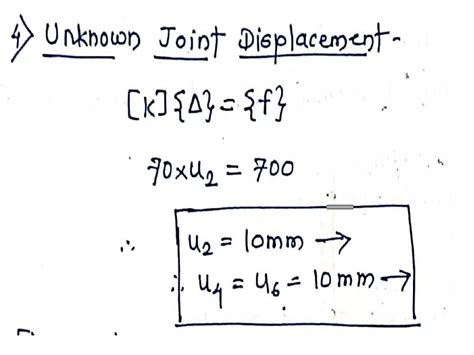 4) Unknown Joint Displacement-
[K]{Δ} = {f}
70xu₂ = 700
∴ u₂ = 10mm →
∴ u₄ = u₆ = 10mm →